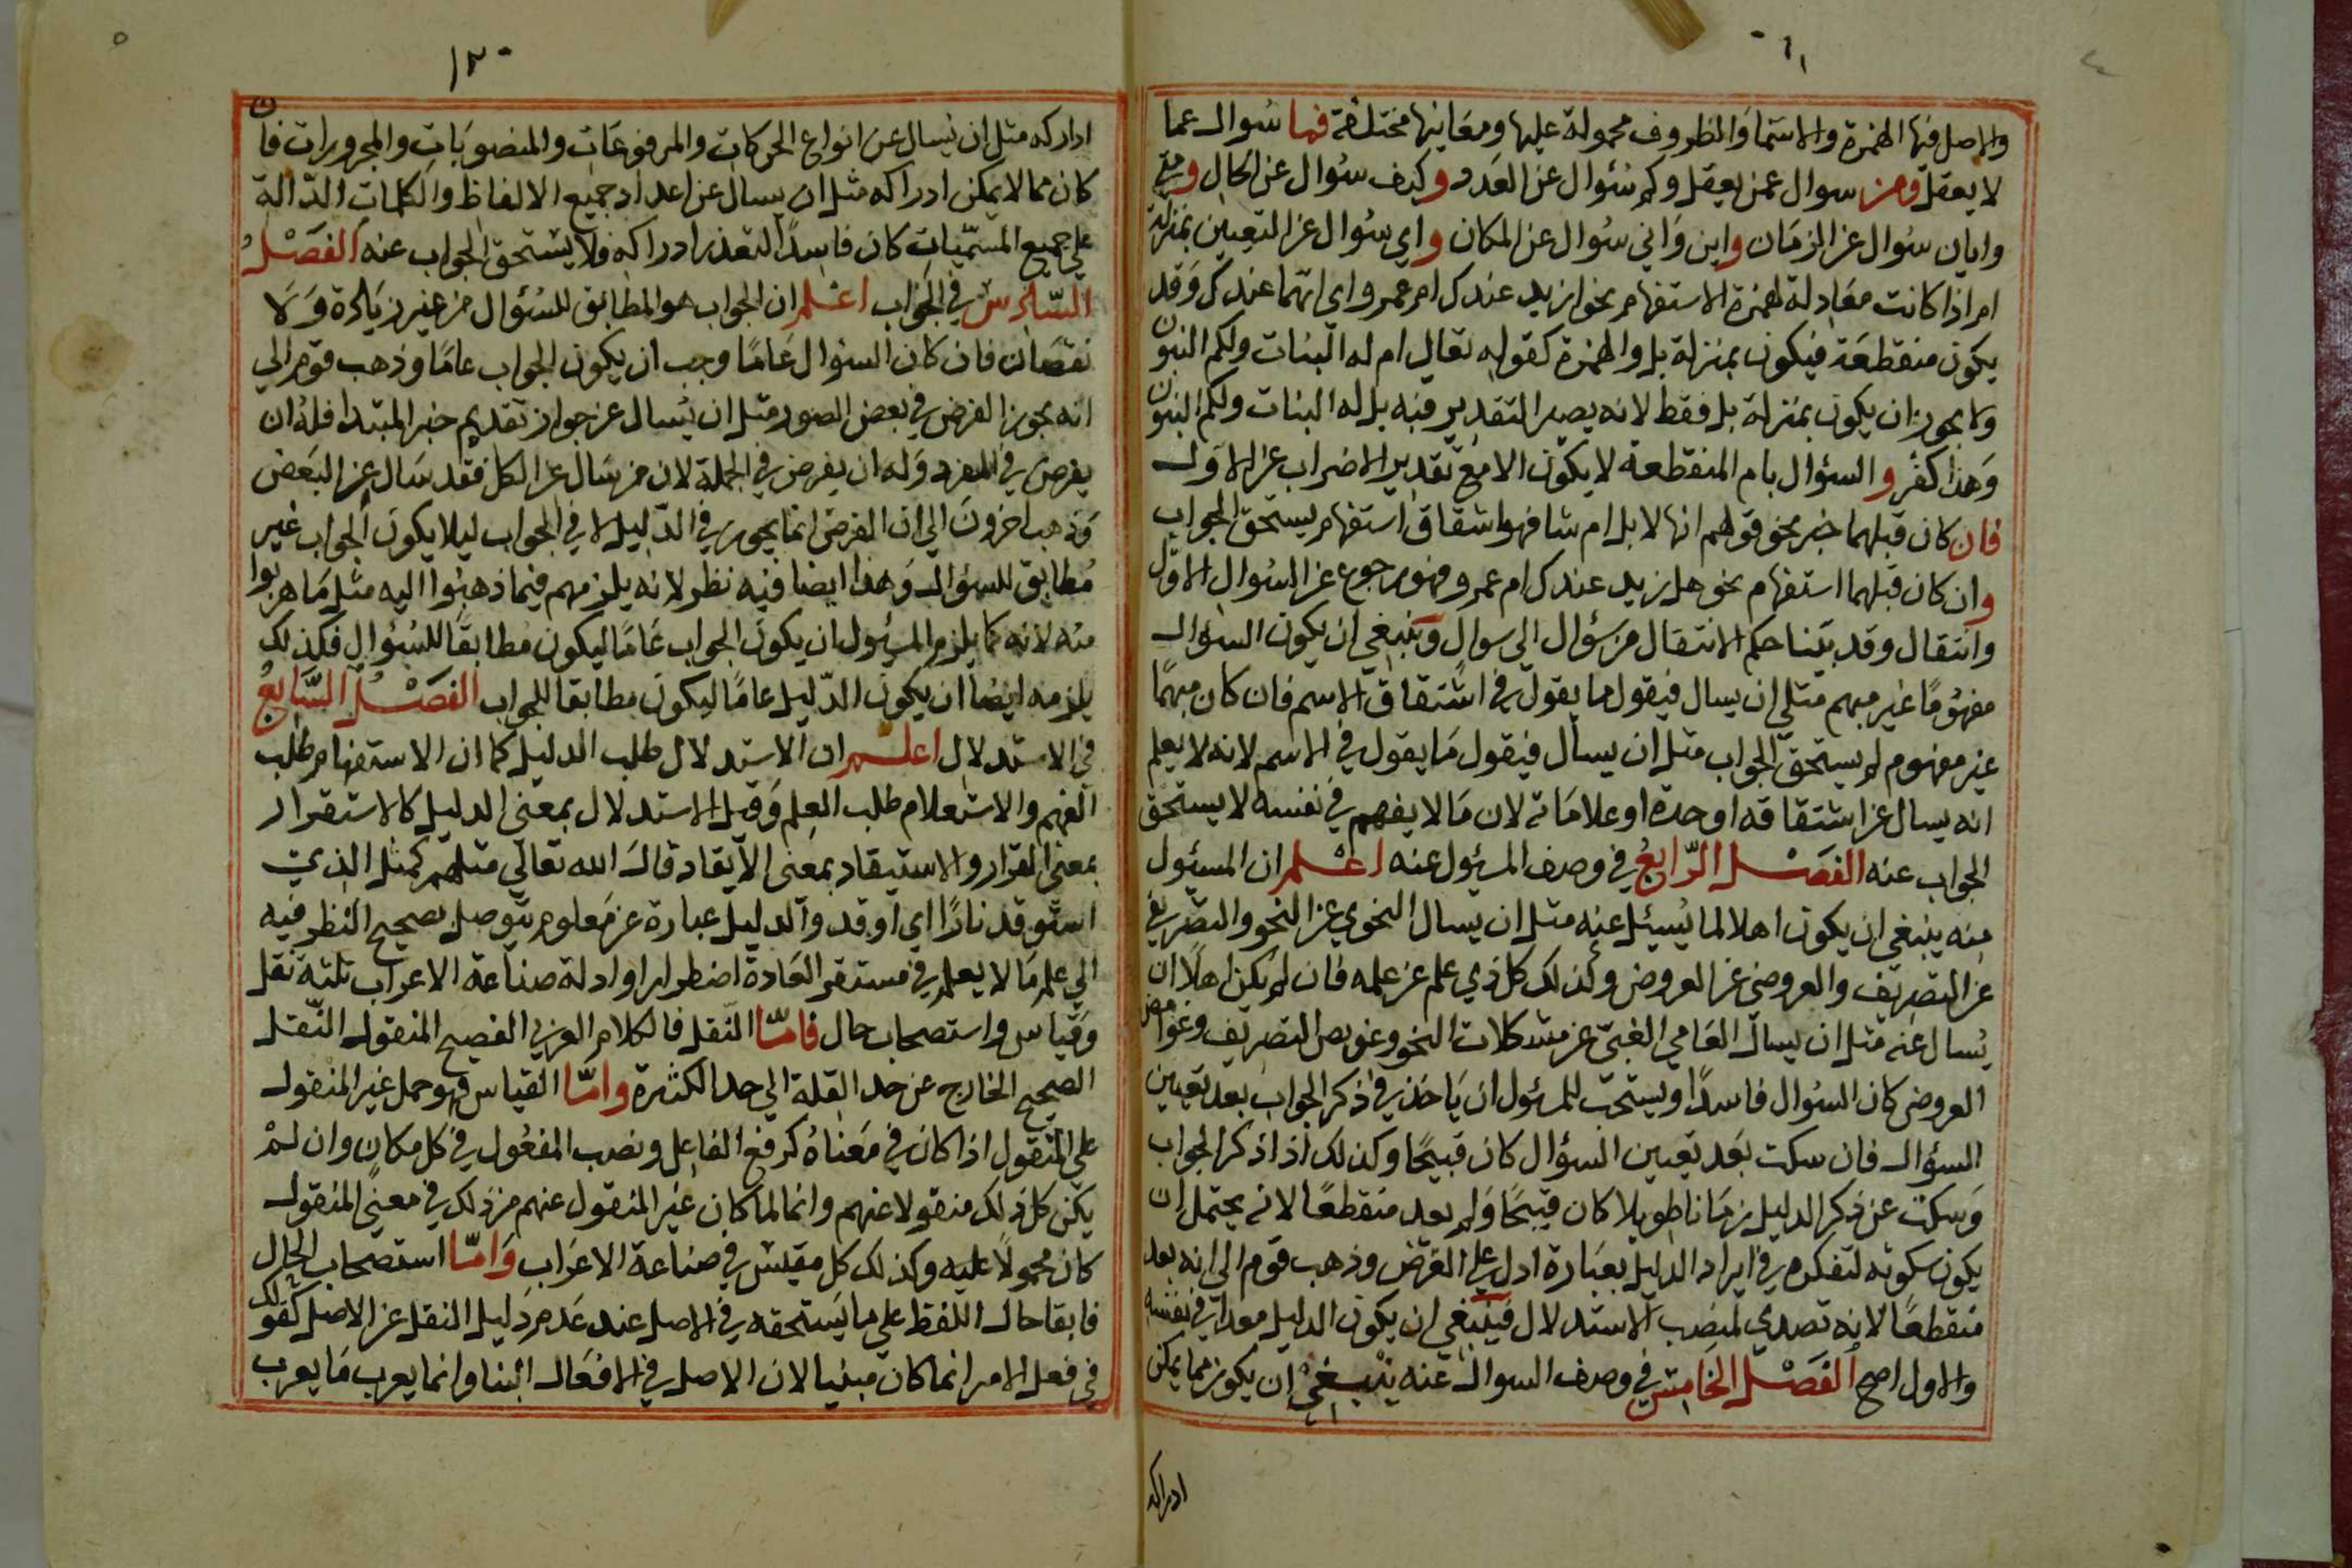 والاصل فيها الهمزة والاسما والظروف محمولة عليها ومعانيها مختلفة فما سوال عما
لا يعقل ومن سوال عمن يعقل وكم سئوال عن العدد وكيف سئوال عن الحال ومتي
وايان سئوال عن الزمان واين واني سئوال عن المكان واي سئوال عن التعيين بمنزلة
ام اذا كانت معادلة لهمزة الاستفهام نحو ازيد عندك ام عمرو اي ايهما عندك وقد
يكون منقطعة فيكون بمنزلة بل والهمزة كقوله تعالي ام له البنات ولكم البنون
ولا يجوز ان يكون بمنزلة بل فقط لانه يصير التقدير فيه بل له البنات ولكم البنون
وهذا كفر والسئوال بام المنقطعة لا يكون الا مع تقدير الاضراب عن الاول
فان كان قبلهما خبر نحو قولهم انها لابل ام شا فهو اشقاق استفهام يستحق الجواب
وان كان قبلهما استفهام نحو هل زيد عندك ام عمرو فهو رجوع عن السئوال الاول
وانتقال وقد بينا حكم الانتقال من سئوال الي سوال وينبغي ان يكون السئوال
مفهوما غير مبهم مثل ان يسال فيقول ما يقول في اشتقاق الاسم فان كان مبهما
غير مفهوم لم يستحق الجواب مثل ان يسال فيقول ما يقول في الاسم لانه لا يعلم
انه يسال عن اشتقاقه او حده او علاماته لان ما لا يفهم في نفسه لا يستحق
الجواب عنه الفصل الرابع في وصف المسئول عنه اعلم ان المسئول
منه ينبغي ان يكون اهلا لما يسيئل عنه مثل ان يسال النحوي عن النحو والتصريفي
عن التصريف والعروضي عن العروض وكذلك كل ذي علم عن علمه فان لم يكن اهلا ان
يسال عنه مثل ان يسال العامي الغبي عن مشكلات النحو وعويص التصريف وغوامض
العروض كان السئوال فاسدا ويستحب للمسئول ان ياخذ في ذكر الجواب بعد تعيين
السئوال فان سكت بعد تعيين السئوال كان قبيحا وكذلك اذا ذكر الجواب
وسكت عن ذكر الدليل زمانا طويلا كان قبيحا ولم يعد منقطعا لانه يحتمل ان
يكون سكوته لتفكره في ايراد الدليل بعبارة ادل علي الغرض وذهب قوم الي انه يعد
منقطعا لانه تصدي لمنصب الاستدلال فينبغي ان يكون الدليل معدا في نفسه
والاول اصح الفصل الخامس في وصف السوال عنه ينبغي ان يكون مما يمكن
ادراكه
ادراكه مثل ان يسال عن انواع الحركات والمرفوعات والمنصوبات والمجرورات فان
كان مما لا يمكن ادراكه مثل ان يسال عن اعداد جميع الالفاظ والكلمات الدالة
علي جميع المسميات كان فاسدا لتعذر ادراكه فلا يستحق الجواب عنه الفصل
السادس في الجواب اعلم ان الجواب هو المطابق للسئوال من غير زيادة ولا
نقصان فان كان السئوال عاما وجب ان يكون الجواب عاما وذهب قوم الي
انه يجوز الفرض في بعض الصور مثل ان يسال عن جواز تقديم خبر المبتدا فله ان
يفرض في المفرد وله ان يفرض في الجملة لان من سال عن الكل فقد سال عن البعض
وذهب اخرون الي ان الفرض انما يجوز في الدليل لا في الجواب ليلا يكون الجواب غير
مطابق للسئوال وهذا ايضا فيه نظر لانه يلزمهم فيما ذهبوا اليه مثل ما هربوا
منه لانه كما يلزم المسئول ان يكون الجواب عاما ليكون مطابقا للسئوال فكذلك
يلزمه ايضا ان يكون الدليل عاما ليكون مطابقا للجواب الفصل السابع
في الاستدلال اعلم ان الاستدلال طلب الدليل كما ان الاستفهام طلب
الفهم والاستعلام طلب العلم وقيل الاستدلال بمعني الدليل كالاستقرار
بمعني القرار والاستيقاد بمعني الايقاد قال الله تعالي مثلهم كمثل الذي
استوقد نارا اي اوقد والدليل عبارة عن معلوم يتوصل بصحيح النظر فيه
الي علم ما لا يعلم في مستقر العادة اضطرارا وادلة صناعة الاعراب ثلثة نقل
وقياس واستصحاب حال فاما النقل فالكلام العربي الفصيح المنقول النقل
الصحيح الخارج عن حد القلة الي حد الكثرة واما القياس فهو حمل غير المنقول
علي المنقول اذا كان في معناه كرفع الفاعل ونصب المفعول في كل مكان وان لم
يكن كل ذلك منقولا عنهم وانما لما كان غير المنقول عنهم من ذلك في معني المنقول
كان محمولا عليه وكذلك كل مقيس في صناعة الاعراب واما استصحاب الحال
فابقا حال اللفظ علي ما يستحقه في الاصل عند عدم دليل النقل عن الاصل كقولك
في فعل الامر انما كان مبنيا لان الاصل في الافعال البنا وانما يعرب ما يعرب